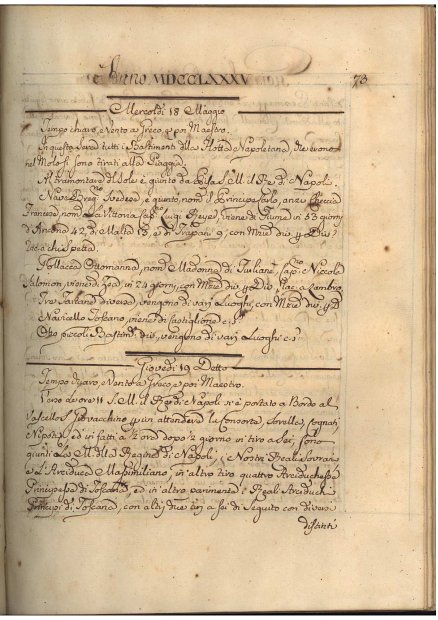 Anno MDCCLXXXV
73
Mercoldì 18 Maggio
Tempo chiaro, Vento a Greco, e poi Maestro.
In questa Sera tutti i Bastimenti della Flotta Napoletana, che erono
nel Molo si sono tirati alla Spiaggia.
Al tramontare del Sole è giunto da Pisa S. M. il Re di Napoli.
Nave Svedese, è giunto, nom: il Principe Carlo, anzi
Francese, nom: La Vittoria Cap: Luigi Reyer, viene di Fiume in 53 giorni
d'Ancona 42, di Malta 18, e di Trapani 9, con Mzie div:
Pollacca Ottomanna, nom: Madonna di Tuliane, Cap: Niccola
Salomon, viene di Zea, in 24 giorni, con Mzie div:
Tre Tartane diverse, vengono da varj Luoghi, con Mzie div:
Navicello Toscano, viene di Castiglione
Otto piccoli Bastim: div:, vengono di varj Luoghi
Giovedì 19 Detto
Tempo chiaro, Vento a Greco, e poi Maestro.
Verso le ore 11 S. M. il Re di Napoli si è portato a Bordo al
Vascello S. Giovacchino per in attendere la Consorte, Sorelle, Cognati
Nipoti, ed in fatti a 2 ore dopo 2 giorno in tiro a Sei, sono
giunti La M. della Regina di Napoli, i Nostri Reali Sovrani
e L'Arciduca Massimiliano, in altro tiro quattro Arciduchesse
Principesse di Toscana, ed in altro parimente i Reali Arciduchi
Principi di Toscana, con altri due tiri a sei di Seguito con diversi
distinti